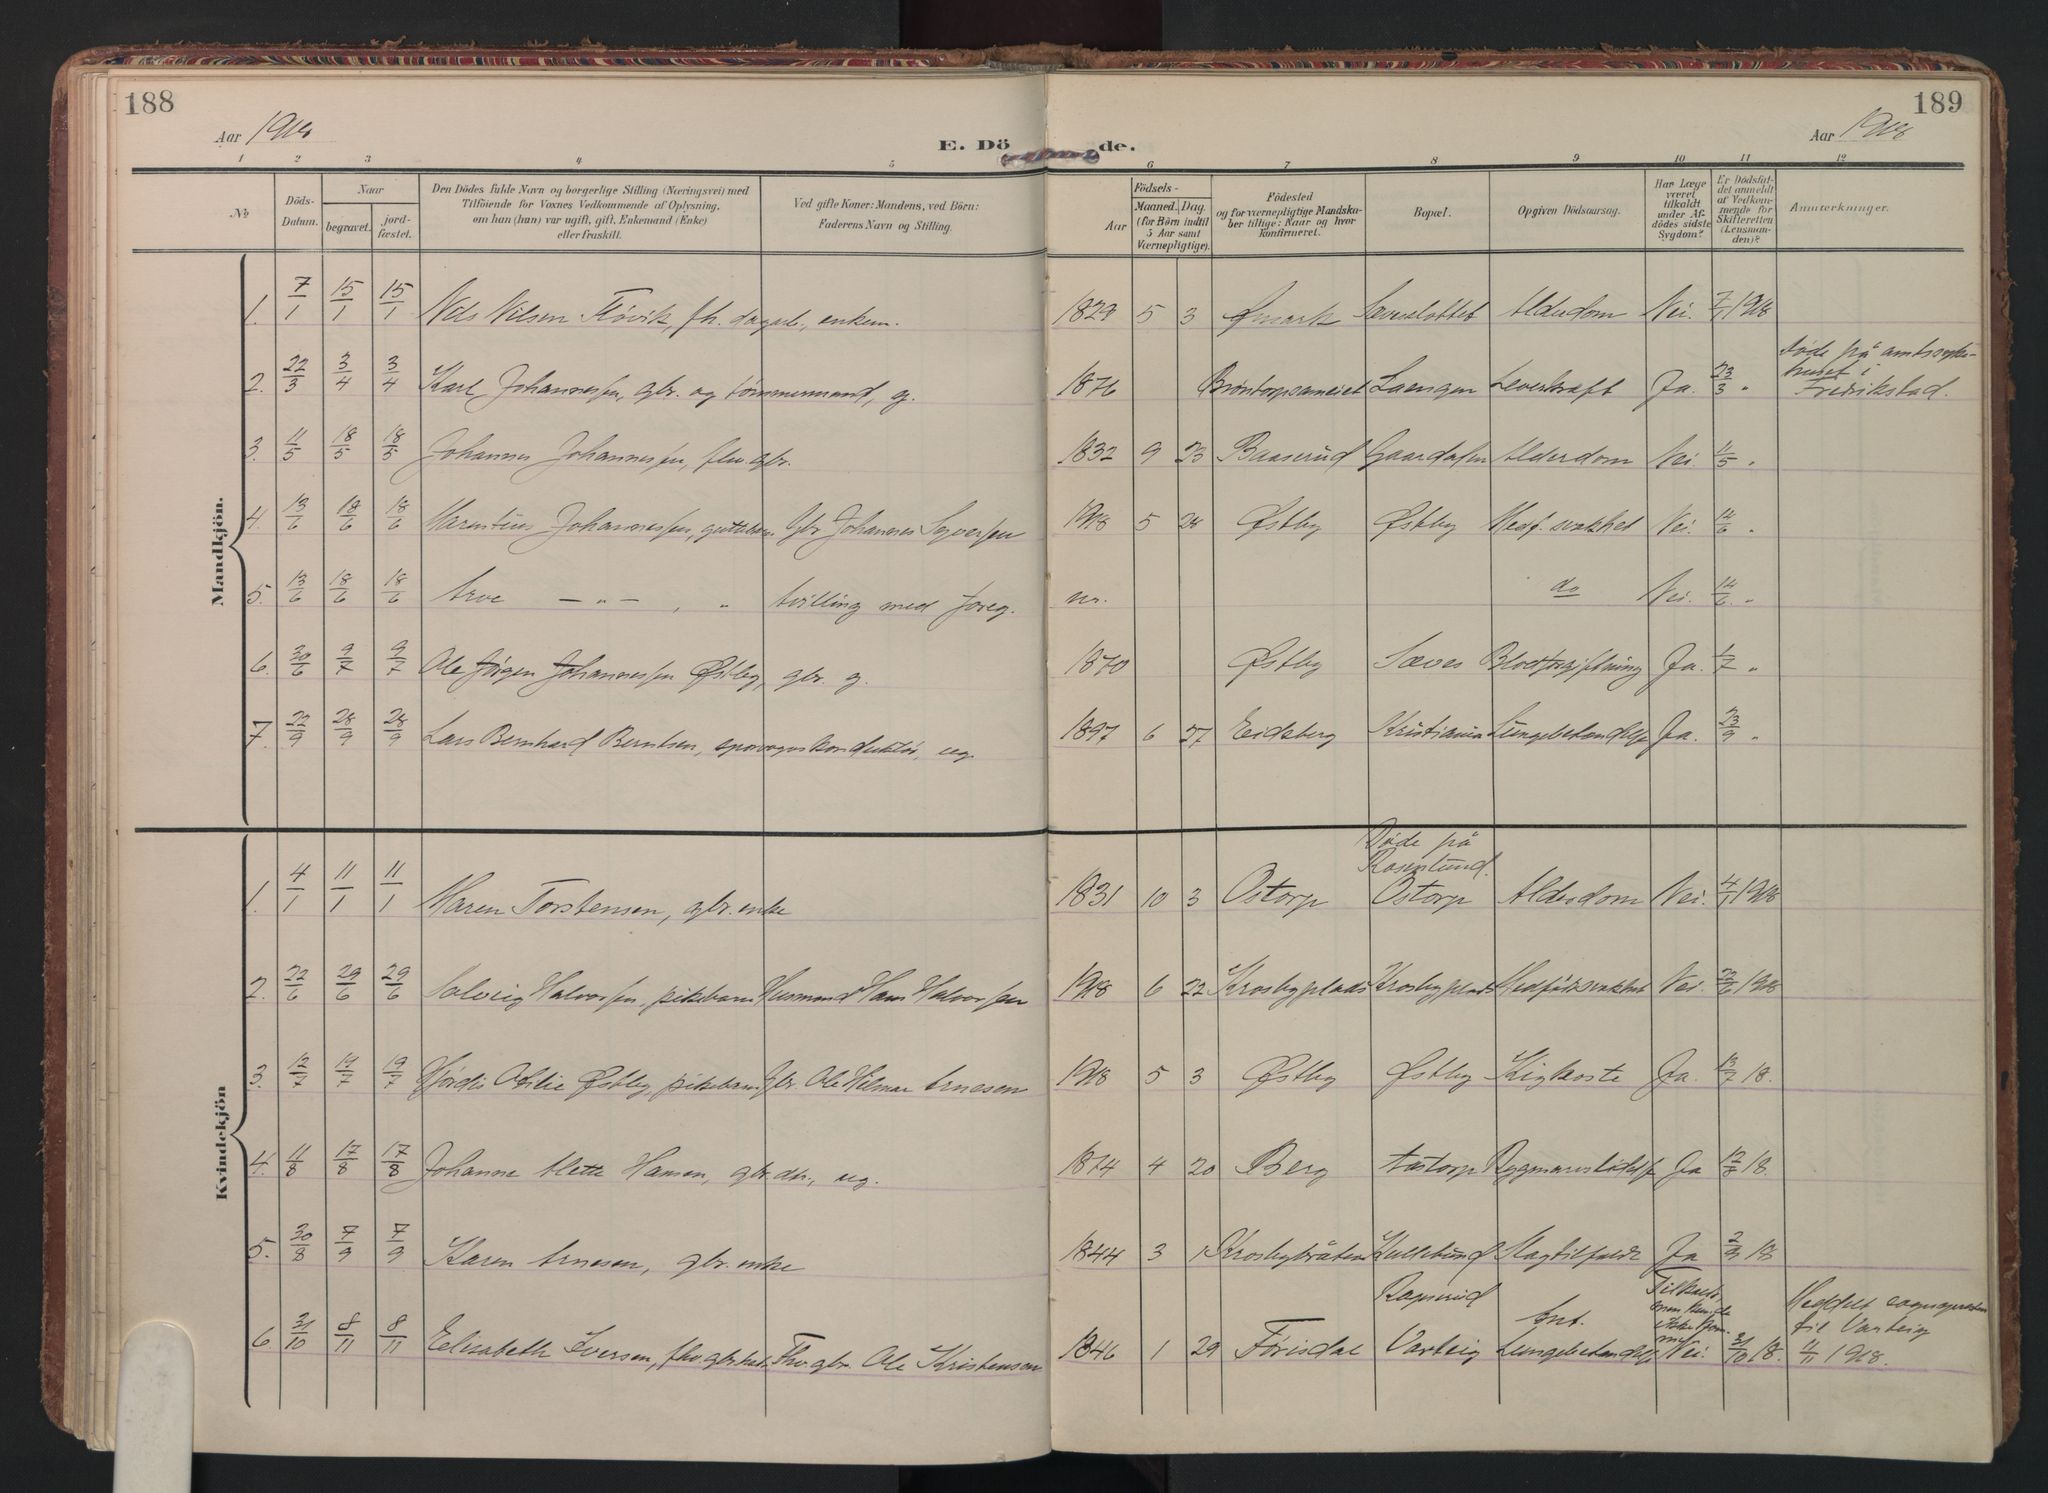 188
189
Aar 1918
E. Dö de.
Aar 1918
1 2 3 4 5 6 7 8 9 10 11 12
No
Döds-Datum.
Naar
begravet.
jord-fæstet.
Den Dödes fulde Navn og borgerlige Stilling (Næringsvei) med
Tilföiende for Voxnes Vedkommende af Oplysning,
om han (hun) var ugift, gift, Enkemand (Enke)
eller fraskilt.
Ved gifte Koner: Mandens, ved Börn:
Faderens Navn og Stilling.
Födsels-
Aar
Maaned. Dag.
(for Börn indtil
5 Aar samt
Værnepligtige).
Födested
og for værnepligtige Mandska-
ber tillige: Naar og hvor
konfirmeret.
Bopæl.
Opgiven Dödsaarsag.
Har Læge
været
tilkaldt
under Af-
dödes sidste
Sygdom?
Er Dödsfal-
det anmeldt
af Vedkom-
mende for
Skifteretten
(Lensman-
den)?
Anmærkninger.
Mandkjön.
1. 7/1 15/1 15/1 Nils Nilsen Fløvik, fh. dagarb., enkem. 1829 5 3 Ømark Sæveslottet Alderdom Nei. 7/1 1918
2. 22/3 3/4 3/4 Karl Johannessen, gbr. og tømmermand, g. 1876 Brøntorpsameiet Laengen Leverkræft Ja. 23/3 " Døde på amtssyke-
huset i
Fredrikstad.
3. 11/5 18/5 18/5 Johannes Johannessen, flv. gbr. 1832 9 23 Baaserud Gaardasen Alderdom Nei. 11/5 "
4. 13/6 18/6 18/6 Marentius Johannessen, guttebarn Gbr. Johannes Syversen 1918 5 28 Østby Østby Medf. svakhet Nei. 14/6 "
5. 13/6 18/6 18/6 Arve — " — , " tvilling med foreg. nr. do Nei. 14/6 "
6. 30/6 9/7 9/7 Ole Jørgen Johannessen Østby, gbr. g. 1870 Østby Sæves Blodforgiftning Ja. 1/7 "
7. 22/9 28/9 28/9 Lars Bernhard Berntsen, sporvognskonduktør, ug. 1897 6 27 Eidsberg Kristiania Lungebetændelse Ja. 23/9 "
Kvindekjön
Døde på
Rosenlund.
1. 4/1 11/1 11/1 Maren Torstensen, gbr. enke 1831 10 3 Ostorp Ostorp Alderdom Nei. 4/1 1918
2. 22/6 29/6 29/6 Solveig Halvorsen, pikebarn Husmand Hans Halvorsen 1918 6 22 Krosbyplads Krosbyplads Medfødt svakhet Nei. 22/6 1918
3. 12/7 19/7 19/7 Hjørdis Otilie Østby, pikebarn Gbr. Ole Hilmar Arnesen 1918 5 3 Østby Østby Kighoste Ja. 13/7 18.
4. 11/8 17/8 17/8 Johanne Alette Hansen, gbr. dtr., ug. 1874 4 20 Berg Aastorp Rygmarvslidelse Ja 12/8 18.
5. 30/8 7/9 7/9 Karen Arnesen, gbr. enke 1844 3 1 Krosbybråten Kullebund Slagtilfælde Ja 2/9 18
6. 31/10 8/11 8/11 Elisabeth Iversen, flv. gbr. kone Flv. gbr. Ole Kristensen 1846 1 29 Førisdal Rapserud
Varteig Ant.
Lungebetændelse Tilkaldt,
men kunde
ikke kom-
me Nei. 31/10 18. Meddelt sognepresten
til Varteig
11/11 1918.